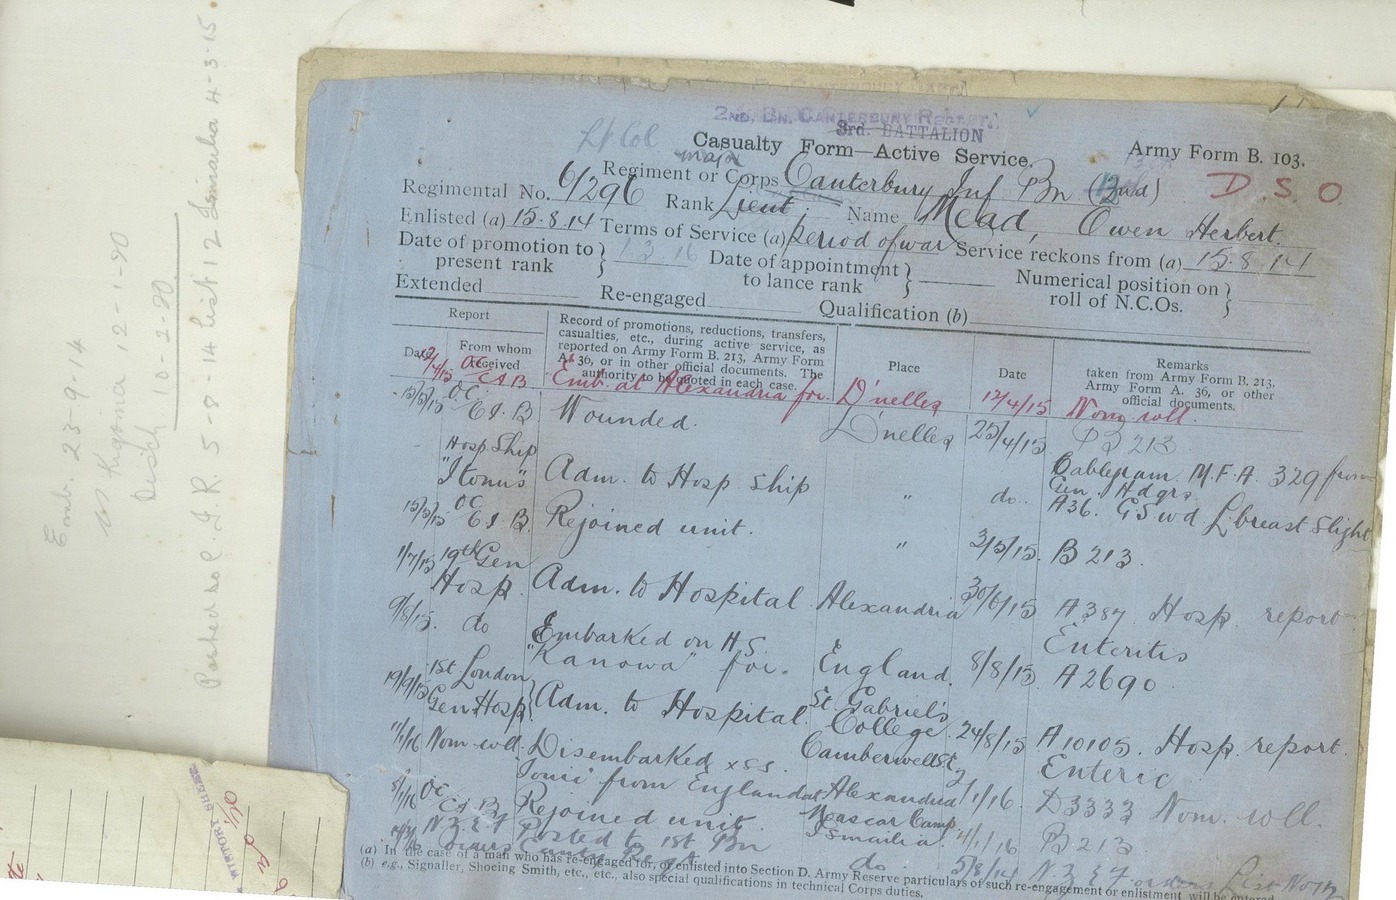 2ND. BN. CANTERBURY REGT.
3rd. BATTALION
Lt Col
Casualty Form—Active Service.
Army Form B. 103.
Major
Regiment or Corps Canterbury Inf Bn (2nd)
D S O
Regimental No. 6/296 Rank Lieut; Name Mead, Owen Herbert.
Enlisted (a) 15.8.14 Terms of Service (a) period of war Service reckons from (a) 15.8.14
Date of promotion to present rank } 1 3 16 Date of appointment to lance rank } Numerical position on roll of N.C.Os. }
Extended Re-engaged Qualification (b)
Report
Date From whom received
Record of promotions, reductions, transfers, casualties, etc., during active service, as reported on Army Form B. 213, Army Form A. 36, or in other official documents. The authority to be quoted in each case.
Place
Date
Remarks
taken from Army Form B. 213, Army Form A. 36, or other official documents.
O.C. C.I.B Emb. at Alexandria for D'nelles 12/4/15 Nom roll.
O.C. C.I.B Wounded. D'nelles 25/4/15 B 213
Hosp Ship "Itonus" Adm. to Hosp Ship " do. Cablegram M.F.A. 329 from Gen Hdqrs A36. GSwd L breast slight
O.C. C I B Rejoined unit. " 3/5/15. B 213.
1/7/15 19th Gen Hosp. Adm. to Hospital Alexandria 30/6/15 A 387 Hosp. report Enteritis
9/8/15. do Embarked on H.S. "Kanowa" for. England. 8/8/15. A 2690
19/9/15 1st London Gen Hosp } Adm. to Hospital. St. Gabriel's College Camberwell 24/8/15 A10105. Hosp. report. Enteric
11/1/16 Nom roll. Disembarked ex S.S. from England at Alexandria 2/1/16. D3333 Nom. roll.
8/1/16 O.C. C I B Rejoined unit. Moascar Camp Ismailia. 4/1/16 B 213
N.Z.E.F Orders Posted to 1st Bn do N.Z.E.F orders List No 12
(a) In the case of a man who has re-engaged for, or enlisted into Section D. Army Reserve particulars of such re-engagement or enlistment will be entered.
(b) e.g., Signaller, Shoeing Smith, etc., etc., also special qualifications in technical Corps duties.
Emb. 23-9-14
12-1-20
Disch 10-2-20
5-8-14 List 12 Ismailia 4-3-15
HISTORY SHEET